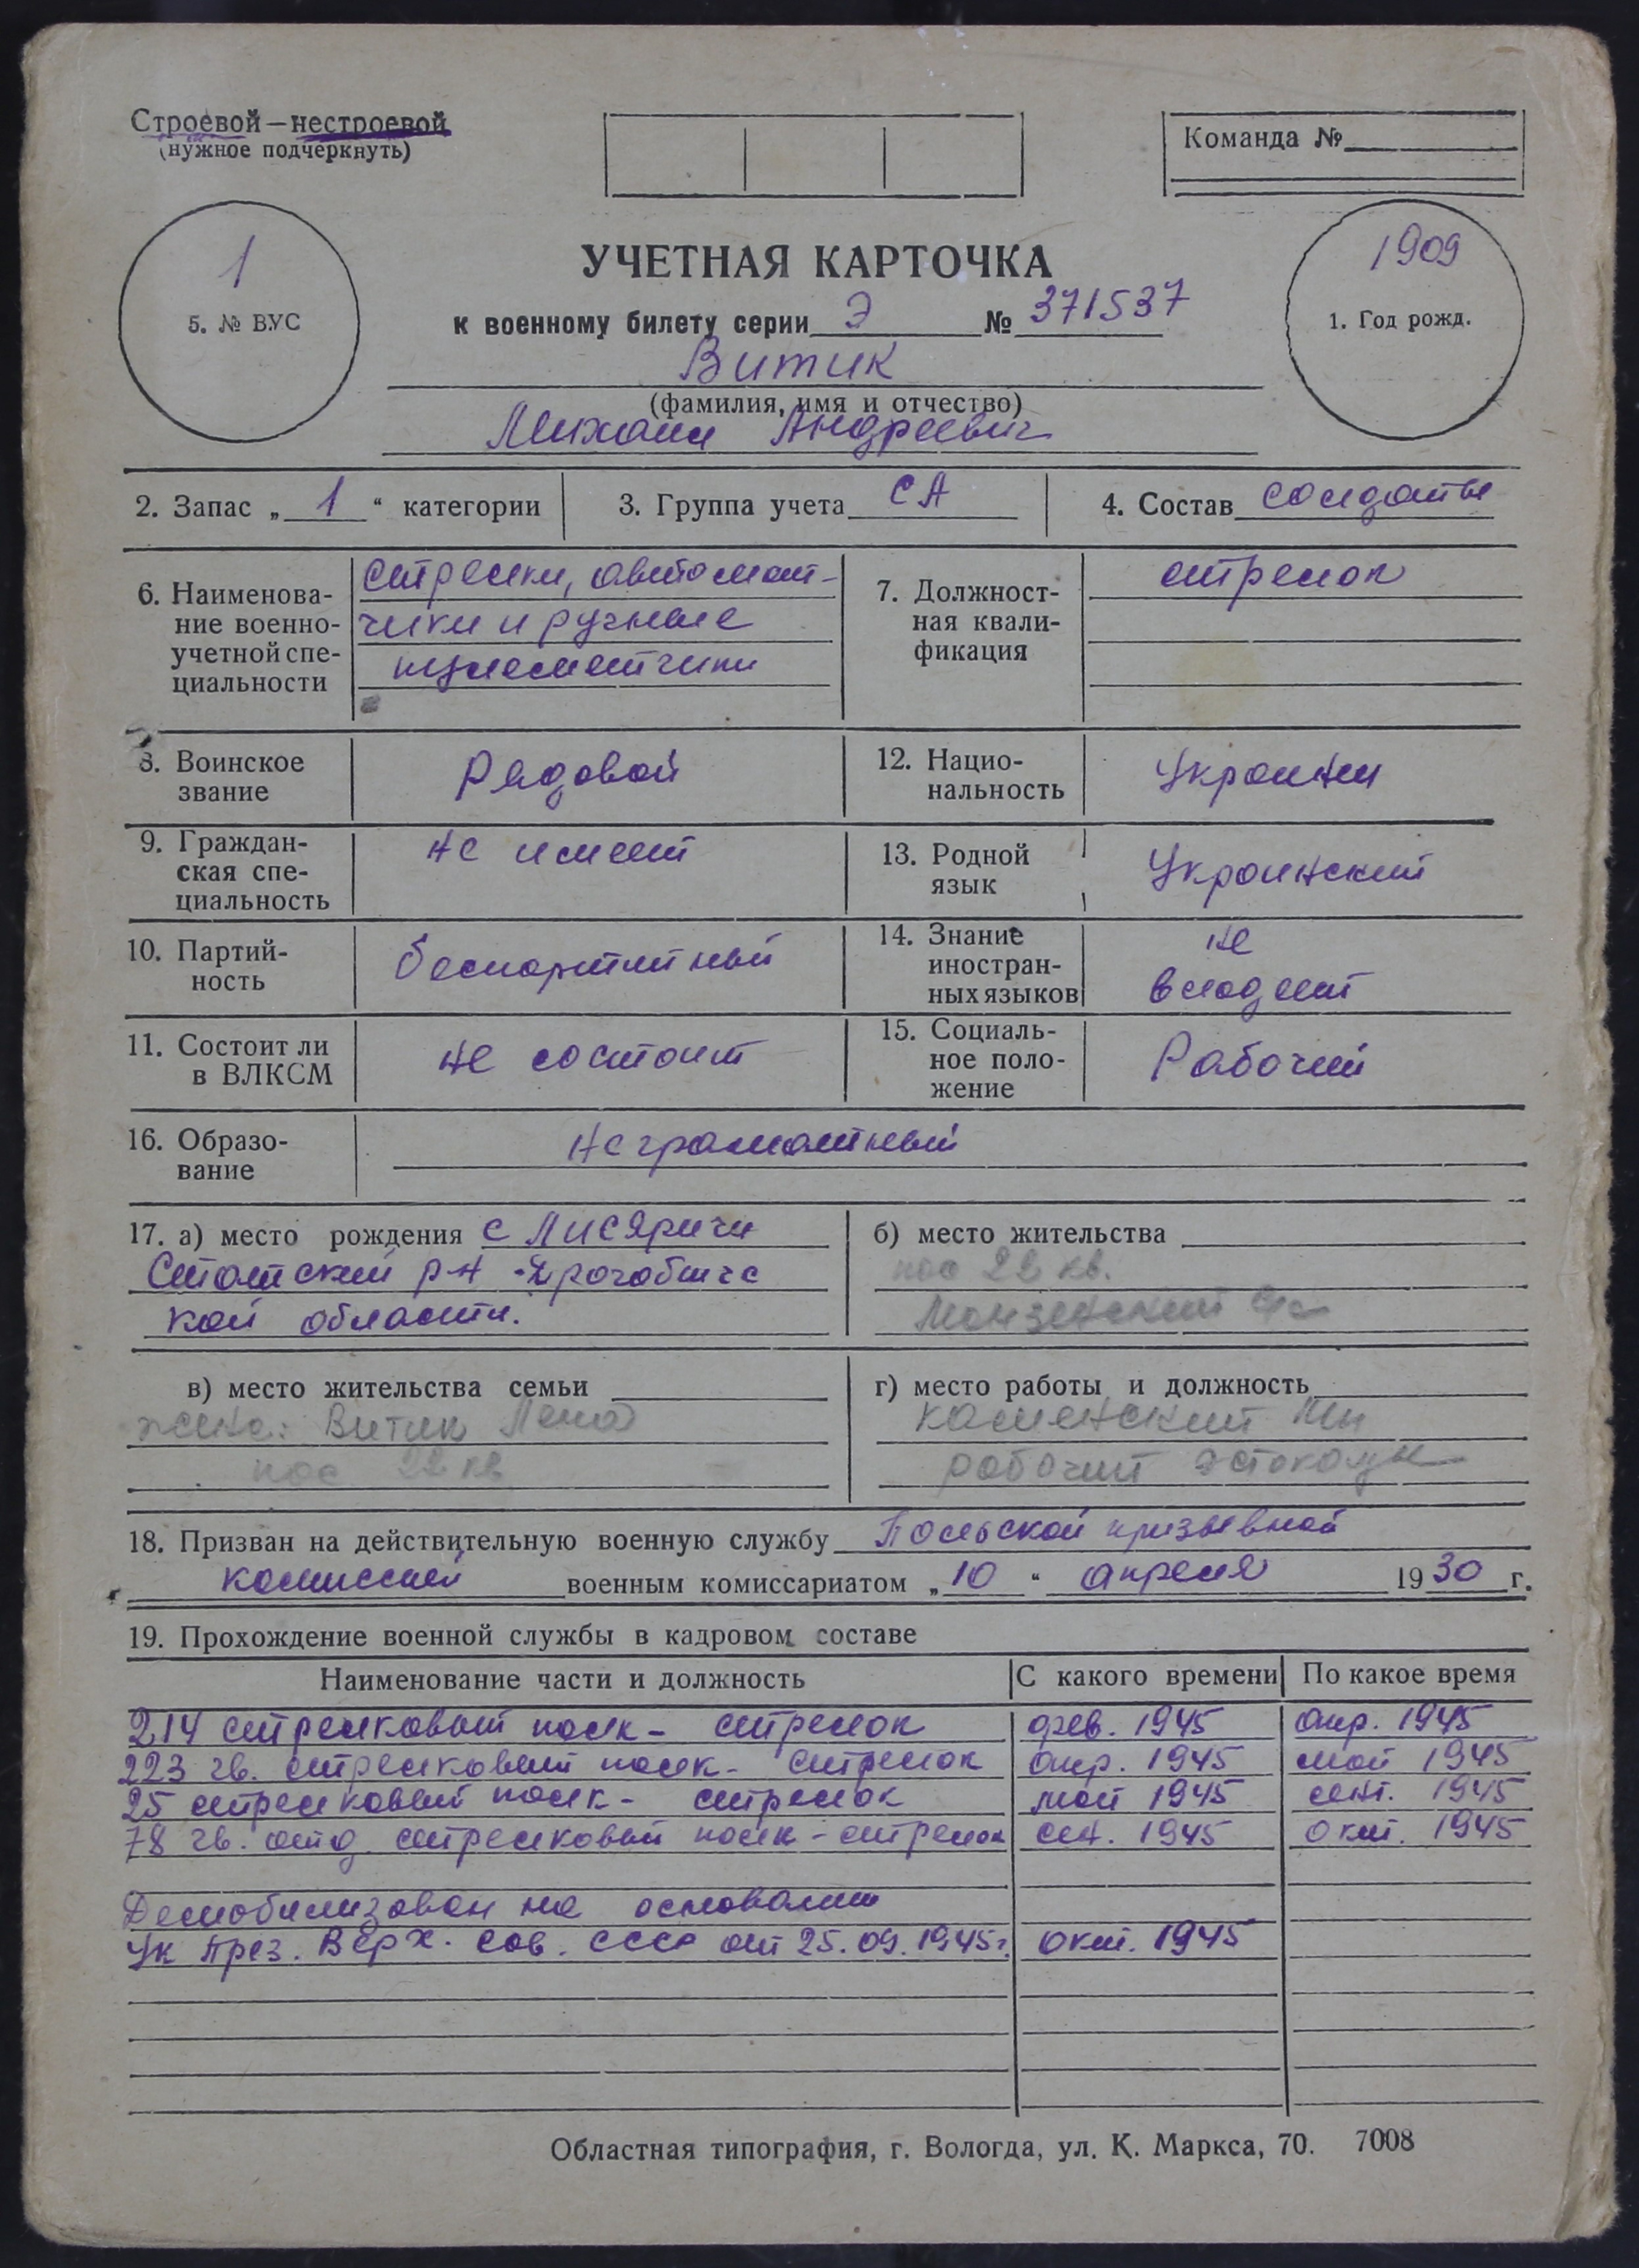 Строевой—нестроевой
(нужное подчеркнуть)
Команда №
1
5. № ВУС
УЧЕТНАЯ КАРТОЧКА
к военному билету серии Э № 371537
1909
1. Год рожд.
Витик
(фамилия, имя и отчество)
Михаил Андреевич
2. Запас „ 1 “ категории
3. Группа учета СА
4. Состав солдаты
6. Наименова-
ние военно-
учетной спе-
циальности
стрелки, автомат-
чики и ручные
пулеметчики
7. Должност-
ная квали-
фикация
стрелок
8. Воинское
звание
Рядовой
12. Нацио-
нальность
Украинц
9. Граждан-
ская спе-
циальность
не имеет
13. Родной
язык
Украинский
10. Партий-
ность
беспартийный
14. Знание
иностран-
ных языков
не
владеет
11. Состоит ли
в ВЛКСМ
не состоит
15. Социаль-
ное поло-
жение
Рабочий
16. Образо-
вание
неграмотный
17. а) место рождения с Лисяричи
р-н Дрогобичс
кой области.
б) место жительства
пос 22 кв.
Монзенский
в) место жительства семьи
жена: Витик Лена
пос 22 кв
г) место работы и должность
Каменский ЛПП
рабочий эстокады
18. Призван на действительную военную службу Польской призывной
комиссией военным комиссариатом „ 10 “ апреля 1930 г.
19. Прохождение военной службы в кадровом составе
Наименование части и должность С какого времени По какое время
214 стрелковый полк – стрелок фев. 1945 апр. 1945
223 гв. стрелковый полк – стрелок апр. 1945 май 1945
25 стрелковый полк – стрелок май 1945 сент. 1945
78 гв. отд. стрелковый полк – стрелок сен. 1945 окт. 1945
Демобилизован на основании
Ук През. Верх. Сов. СССР от 25.09.1945г. окт. 1945
Областная типография, г. Вологда, ул. К. Маркса, 70. 7008